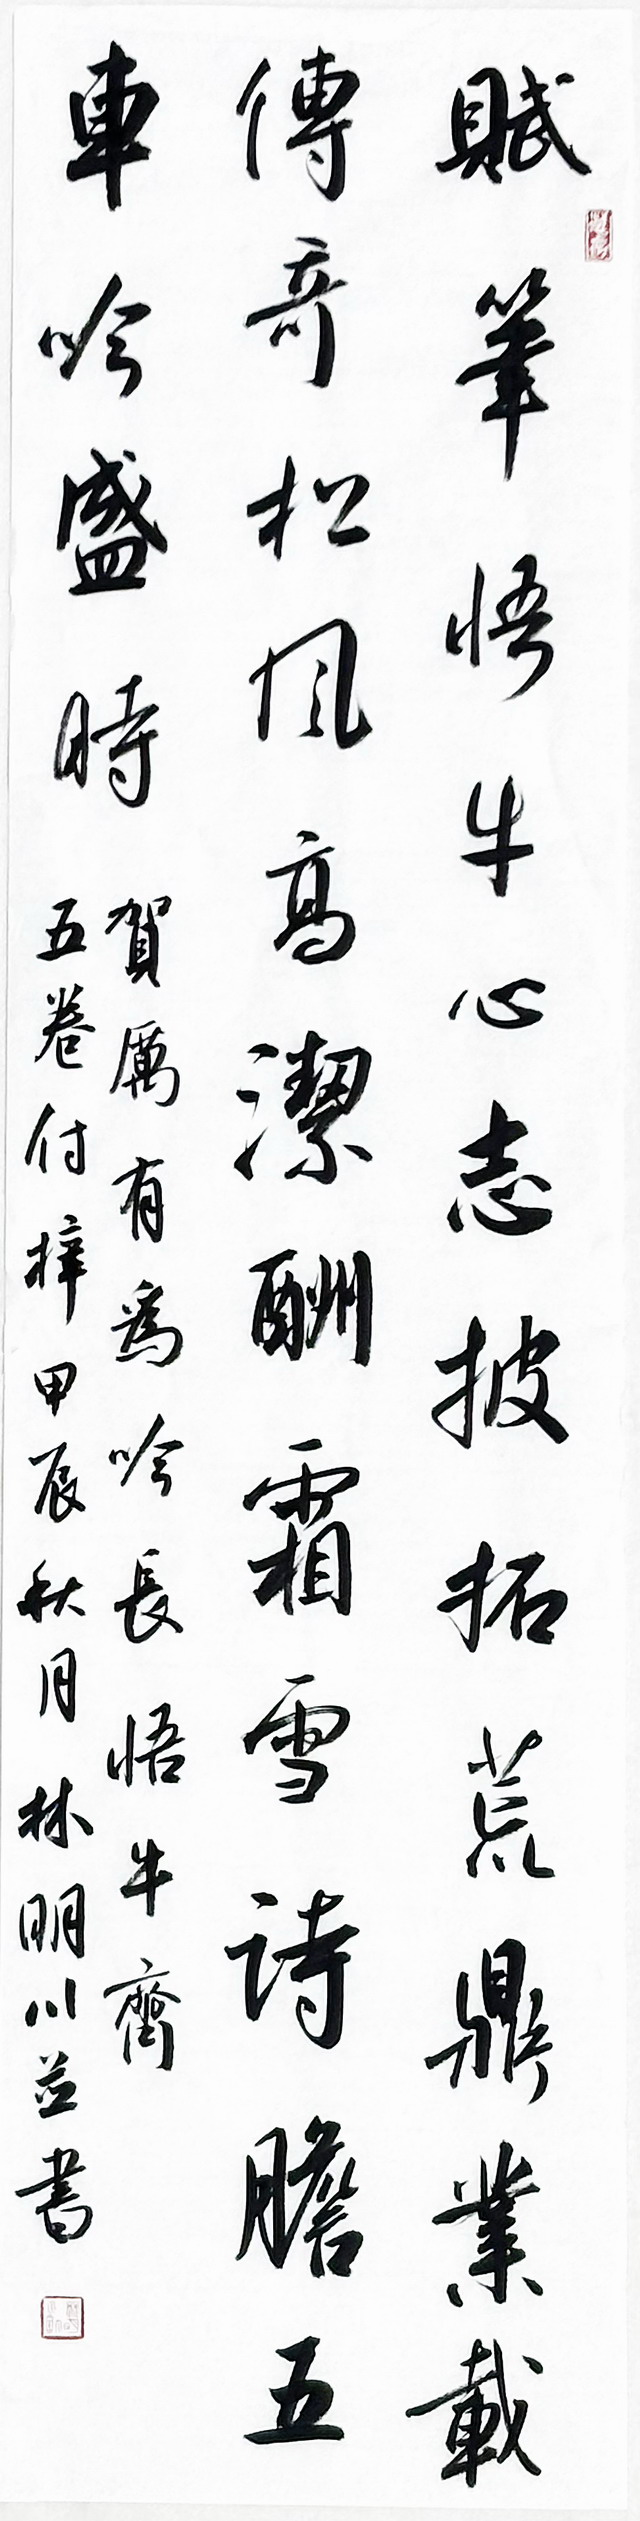 賦筆悟牛心志披拓荒鼎業載
傳奇松風高潔酬霜雪詩膽五
車吟盛時
賀厲有為吟長悟牛齋
五卷付梓甲辰秋月林明川並書